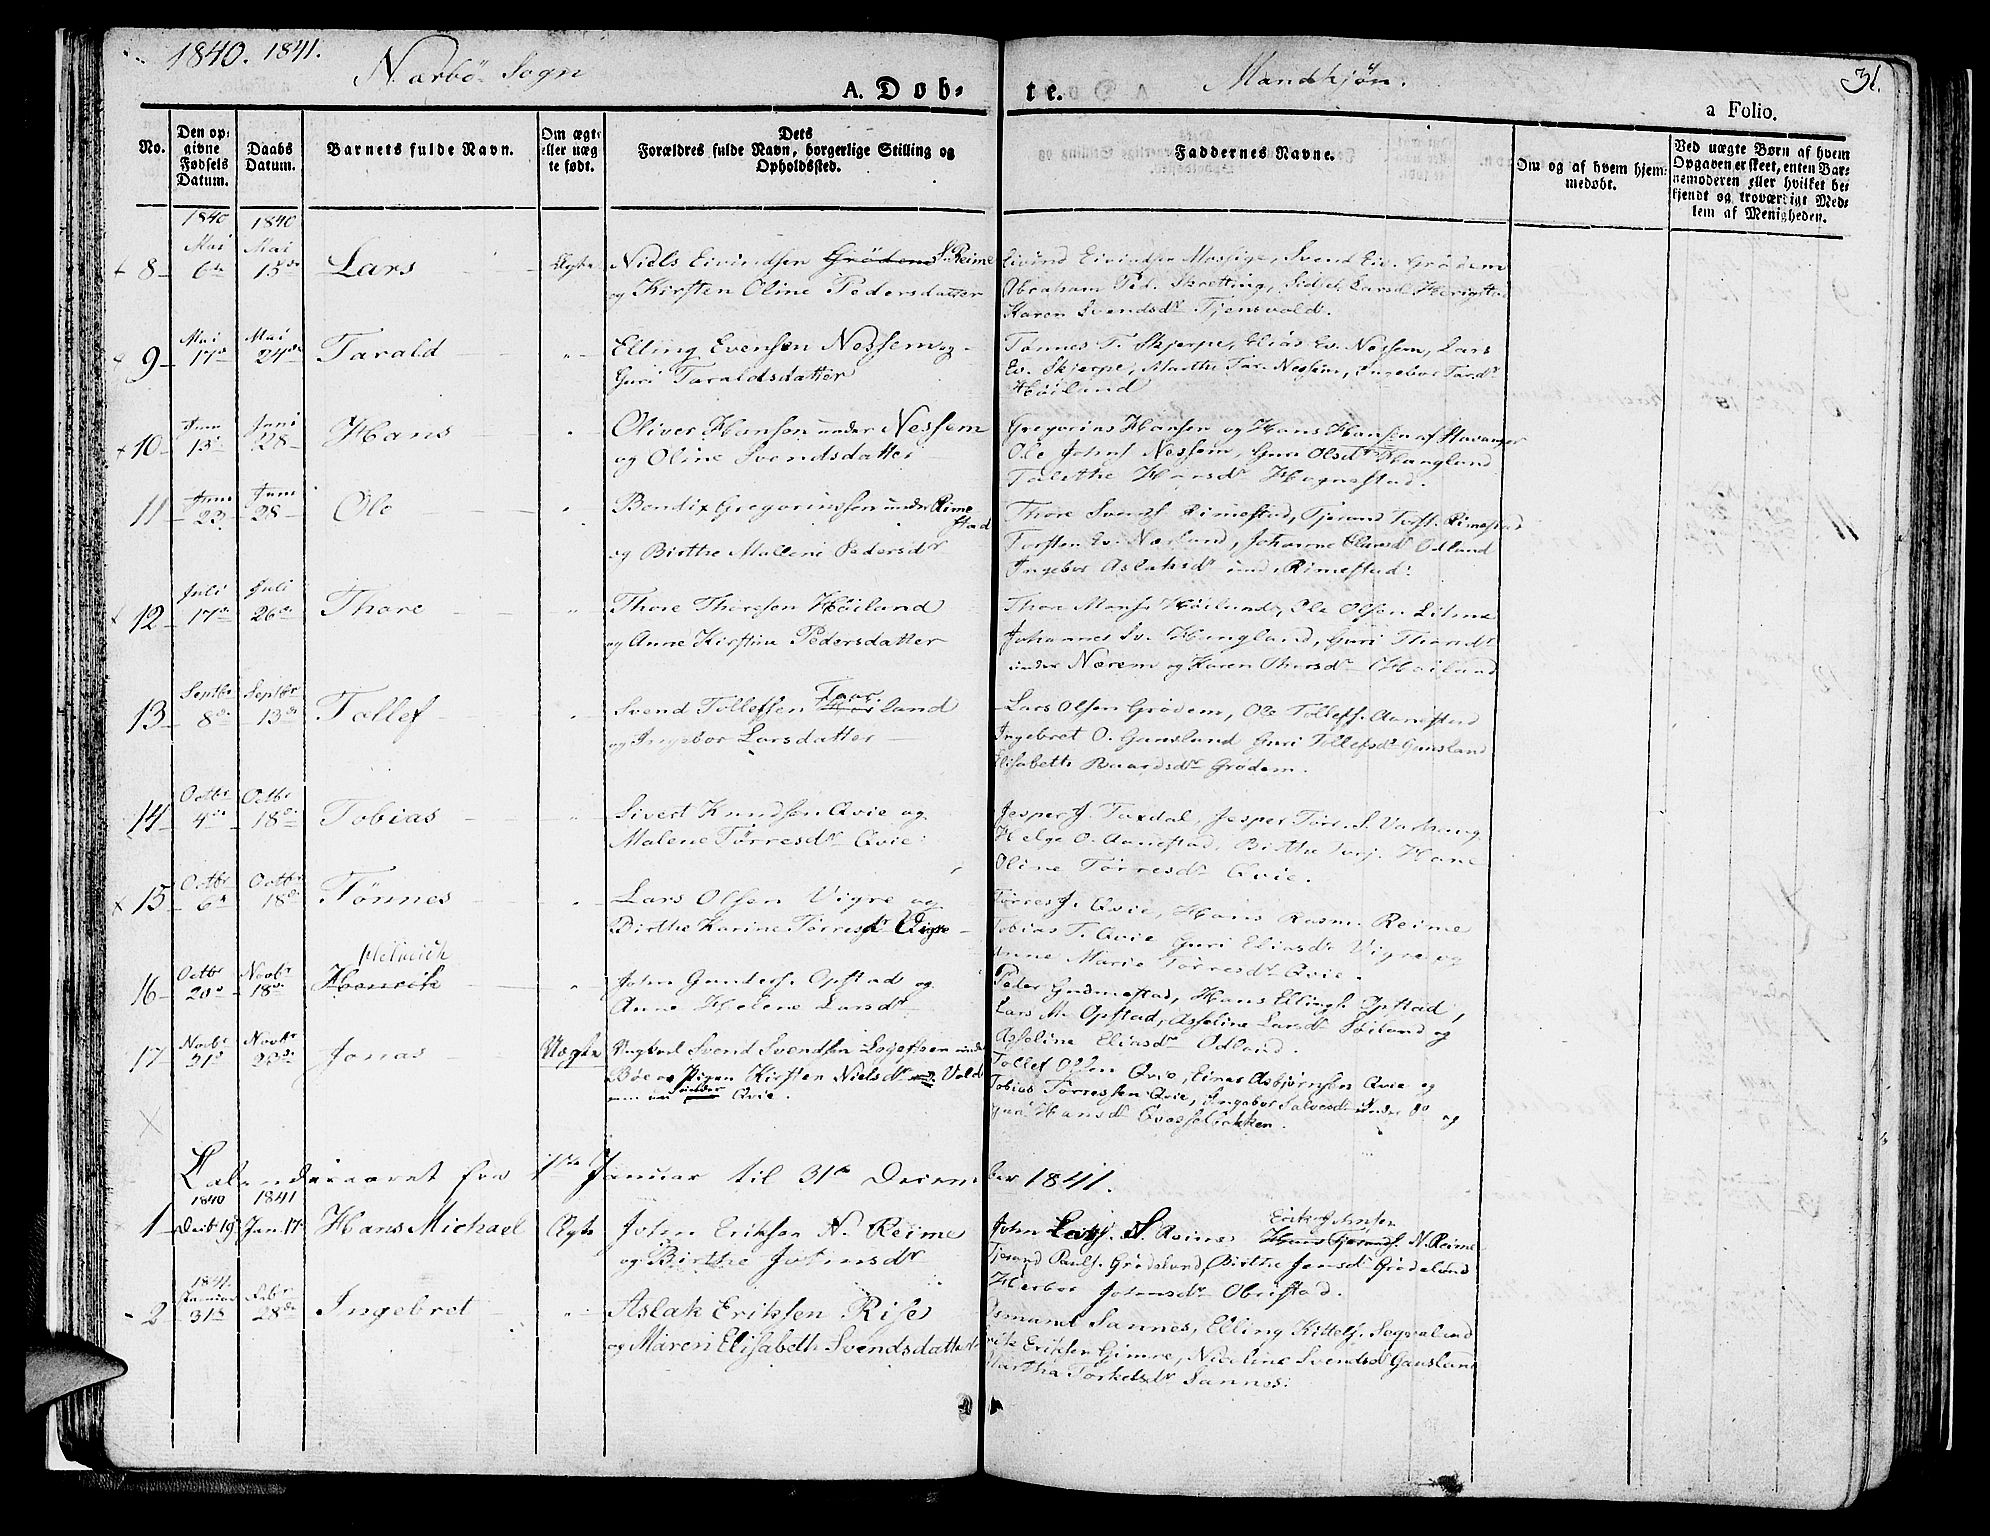 1840. 1841.
Narbö Sogn
A. Døb-
te.
Mandkjøn.
31.
a Folio.
No.
Den op-
givne
Fødsels
Datum.
Daabs
Datum.
Barnets fulde Navn.
Om ægte
eller uæg
te født.
Dets
Forældres fulde Navn, borgerlige Stilling og
Opholdssted.
Faddernes Navne.
Om og af hvem hjem-
medøbt.
Ved uægte Børn af hvem
Opgaven er skeet, enten Bar-
nemoderen eller hvilket be-
kjendt og troværdigt Med-
lem af Menigheden.
1840 1840
8 Mai 6te Mai 15de Lars Ægte Niels Eivindsen Grödem S. Reime
og Kirsten Oline Pedersdatter
Eivind Eivindsen Mossige, Svend Eiv. Grödem
Abraham Ped. Skretting, Lars
Karen Svendsdr Tjensvold.
9 Mai 17de Mai 24de Tarald " Elling Evensen Nessem og
Guri Taraldsdatter
Tønnes T. Skjerpe, Elias Ev. Nessem, Lars
Ev. Skjerpe, Marthe Tar. Nessem, Ingebor Tardr
Høiland
10 Juni 13 Juni 28 Hans " Oliver Hansen under Nessem
og Oline Svendsdatter
Gregorius Hansen og Hans Hansen af Stavanger
Ole Johns Nessem, Guri Olsdr Haugland
Talethe Hansdr Hognestad.
11 Juni 23 Juni 28 Ole " Bendix Gregoriussen under Rime
stad
og Birthe Mallene Pedersdr
Thore Svends Rimestad, Tjerand Torst. Rimestad
Torsten Ev. Nærland, Johanne Odland
Ingebor Aslaksdr und. Rimestad.
12 Juli 17de Juli 26de Thore " Thore Thoresen Høiland
og Anne Kirstine Pedersdatter
Thore Mons. Høiland, Ole Olsen Line
Johannes Sv. Haugland, Guri
under Nærem og Karen Thorsdr Høiland
13 Septbr 8de Septbr 13de Tollef " Svend Tollefsen land
og Ingebor Larsdatter
Lars Olsen Grødem, Ole Tollefs. Aanestad
Ingebret O. Gausland Guri Tollefsdr Gausland
Elisabeth Grødem.
14 Octbr 4de Octbr 18de Tobias " Sivert Knudsen Qvie og
Malene Tørresdr Qvie
Jesper J. Taxdal, Jesper Tørr. S. Varhaug
Helge O. Aanestad, Birthe Torj. Hane
Oline Tørresdr Qvie.
15 Octbr 6te Octbr 18de Tønnes " Lars Olsen Vigre og
Birthe Karine Tørresdr Vigre
Tørres J. Qvie, Hans Rasm. Reime
Tobias T. Qvie Guri Eliasdr Vigre og
Anne Marie Tørresdr Qvie.
Helmich
16 Octbr 20de Novbr 18de Henrik " John Gunders. Opstad og
Anne Helene Larsdr
Peder Gudmestad, Hans Ellings. Opstad,
Lars M. Opstad, Asseline Larsdr Søiland og
Asseline Eliasdr Odland.
17 Novbr 21de Novbr 23de Jonas Uægte Ungkarl Svend Svendsen under
Böe og Pigen Kirsten Nielsdr Vold
under Qvie.
Tollef Olsen Qvie, Einar Asbjørnsen Qvie og
Tobias Tørressen Qvie, Ingebor Salvesdr under Do og
Guri Hansdr Qvasseløkken.
Calenderaaret fra 1ste Januar til 31te Decem
ber 1841.
1840 1841
1 Decbr 19 Jan. 17 Hans Michael Ægte John Eriksen N. Reime
og Birthe Johnsdr
John Lars. S. Reime Erik Johnsen N. Reime
Tjerand Pauls. Grødeland, Birthe Jonsdr Grødeland
Herbor Johnsdr Obrestad.
1841
2 Januar 31te Febr 28de Ingebret " Aslak Eriksen Rise
og Maren Elisabeth Svendsdatter
Osmund Sannes, Elling Kittels. Sogvaland
Erik Eriksen Gimre, Nicoline Svendsdr Gausland
Martha Torkelsdr Sannes.